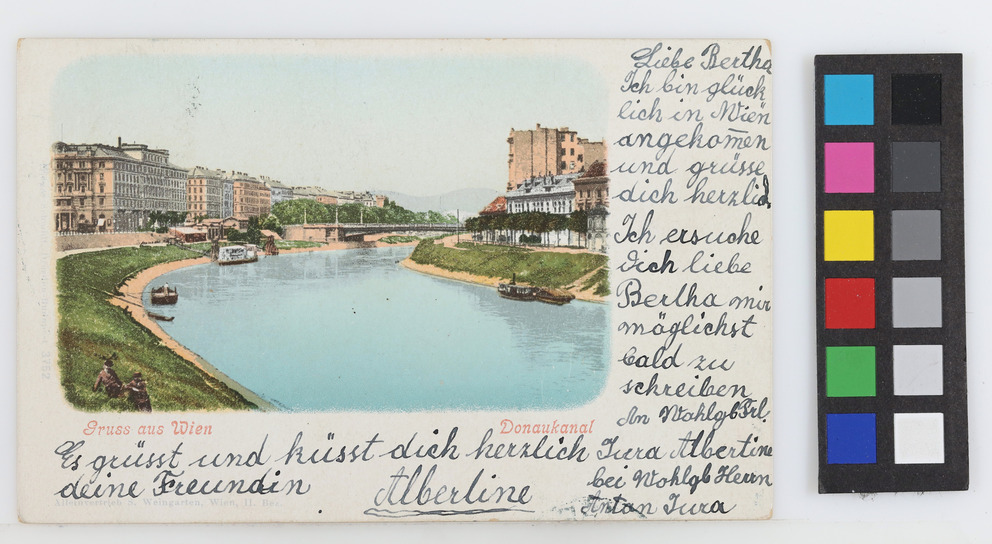 Liebe Bertha
Ich bin glück
lich in Wien
angekom̅en
und grüsse
dich herzlich
Ich ersuche
dich liebe
Bertha mir
möglichst
bald zu
schreiben
An Wohlgb Frl.
Jura Albertine
bei Wohlgb Herrn
Antan Jura
Gruss aus Wien
Donaukanal
Es grüsst und küsst dich herzlich
deine Freundin
Albertine
S. Weingarten, Wien, II.